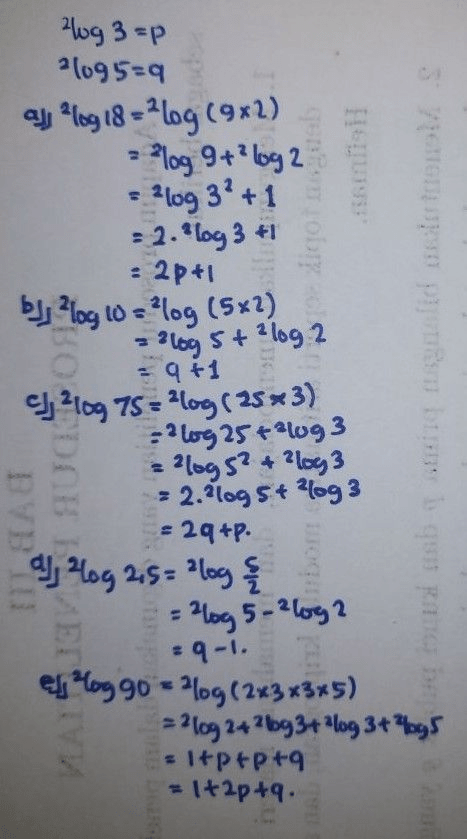 ²log 3 = p
²log 5 = q
a) ²log 18 = ²log (9 × 2)
= ²log 9 + ²log 2
= ²log 3² + 1
= 2 . ²log 3 + 1
= 2p + 1
b) ²log 10 = ²log (5 × 2)
= ²log 5 + ²log 2
= q + 1
c) ²log 75 = ²log (25 × 3)
= ²log 25 + ²log 3
= ²log 5² + ²log 3
= 2 . ²log 5 + ²log 3
= 2q + p.
d) ²log 2,5 = ²log 5/2
= ²log 5 - ²log 2
= q - 1.
e) ²log 90 = ²log (2 × 3 × 3 × 5)
= ²log 2 + ²log 3 + ²log 3 + ²log 5
= 1 + p + p + q
= 1 + 2p + q.